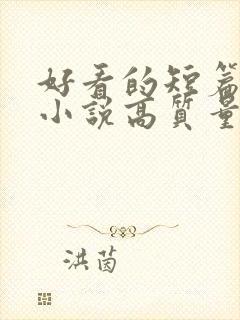 好看的短篇
小说高质量
洪茵